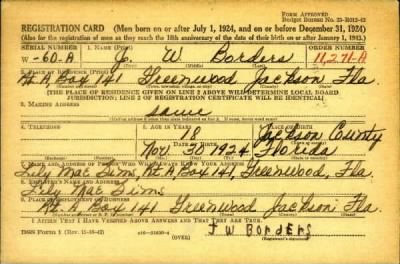 Form Approved
Budget Bureau No. 33-R012-42
REGISTRATION CARD (Men born on or after July 1, 1924, and on or before December 31, 1924)
(Also for the registration of men as they reach the 18th anniversary of the date of their birth on or after January 1, 1943.)
SERIAL NUMBER 1. NAME (Print) ORDER NUMBER
W -60-A J. W Borders 11,271-A
2. PLACE OF RESIDENCE (Print)
Rt. A Box 141 Greenwood Jackson Fla
[THE PLACE OF RESIDENCE GIVEN ON LINE 2 ABOVE WILL DETERMINE LOCAL BOARD
JURISDICTION; LINE 2 OF REGISTRATION CERTIFICATE WILL BE IDENTICAL]
3. MAILING ADDRESS
Same
4. TELEPHONE 5. AGE IN YEARS
18 Jackson County
DATE OF BIRTH
Nov 30 1924 Florida
7. NAME AND ADDRESS OF PERSON WHO WILL ALWAYS KNOW YOUR ADDRESS
Lily Mae Sims, Rt. A Box 141, Greenwood, Fla.
8. EMPLOYER'S NAME AND ADDRESS
Lily Mae Sims
9. PLACE OF EMPLOYMENT OR BUSINESS
Rt. A Box 141 Greenwood Jackson Fla.
I AFFIRM THAT I HAVE VERIFIED ABOVE ANSWERS AND THAT THEY ARE TRUE.
DSS Form 1 (Rev. 11-16-42) (OVER)
J W Borders